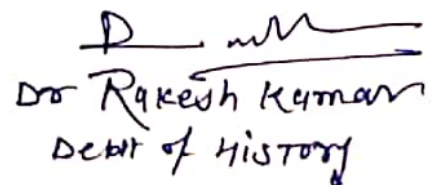 Dr Rakesh Kumar
Deptt of History